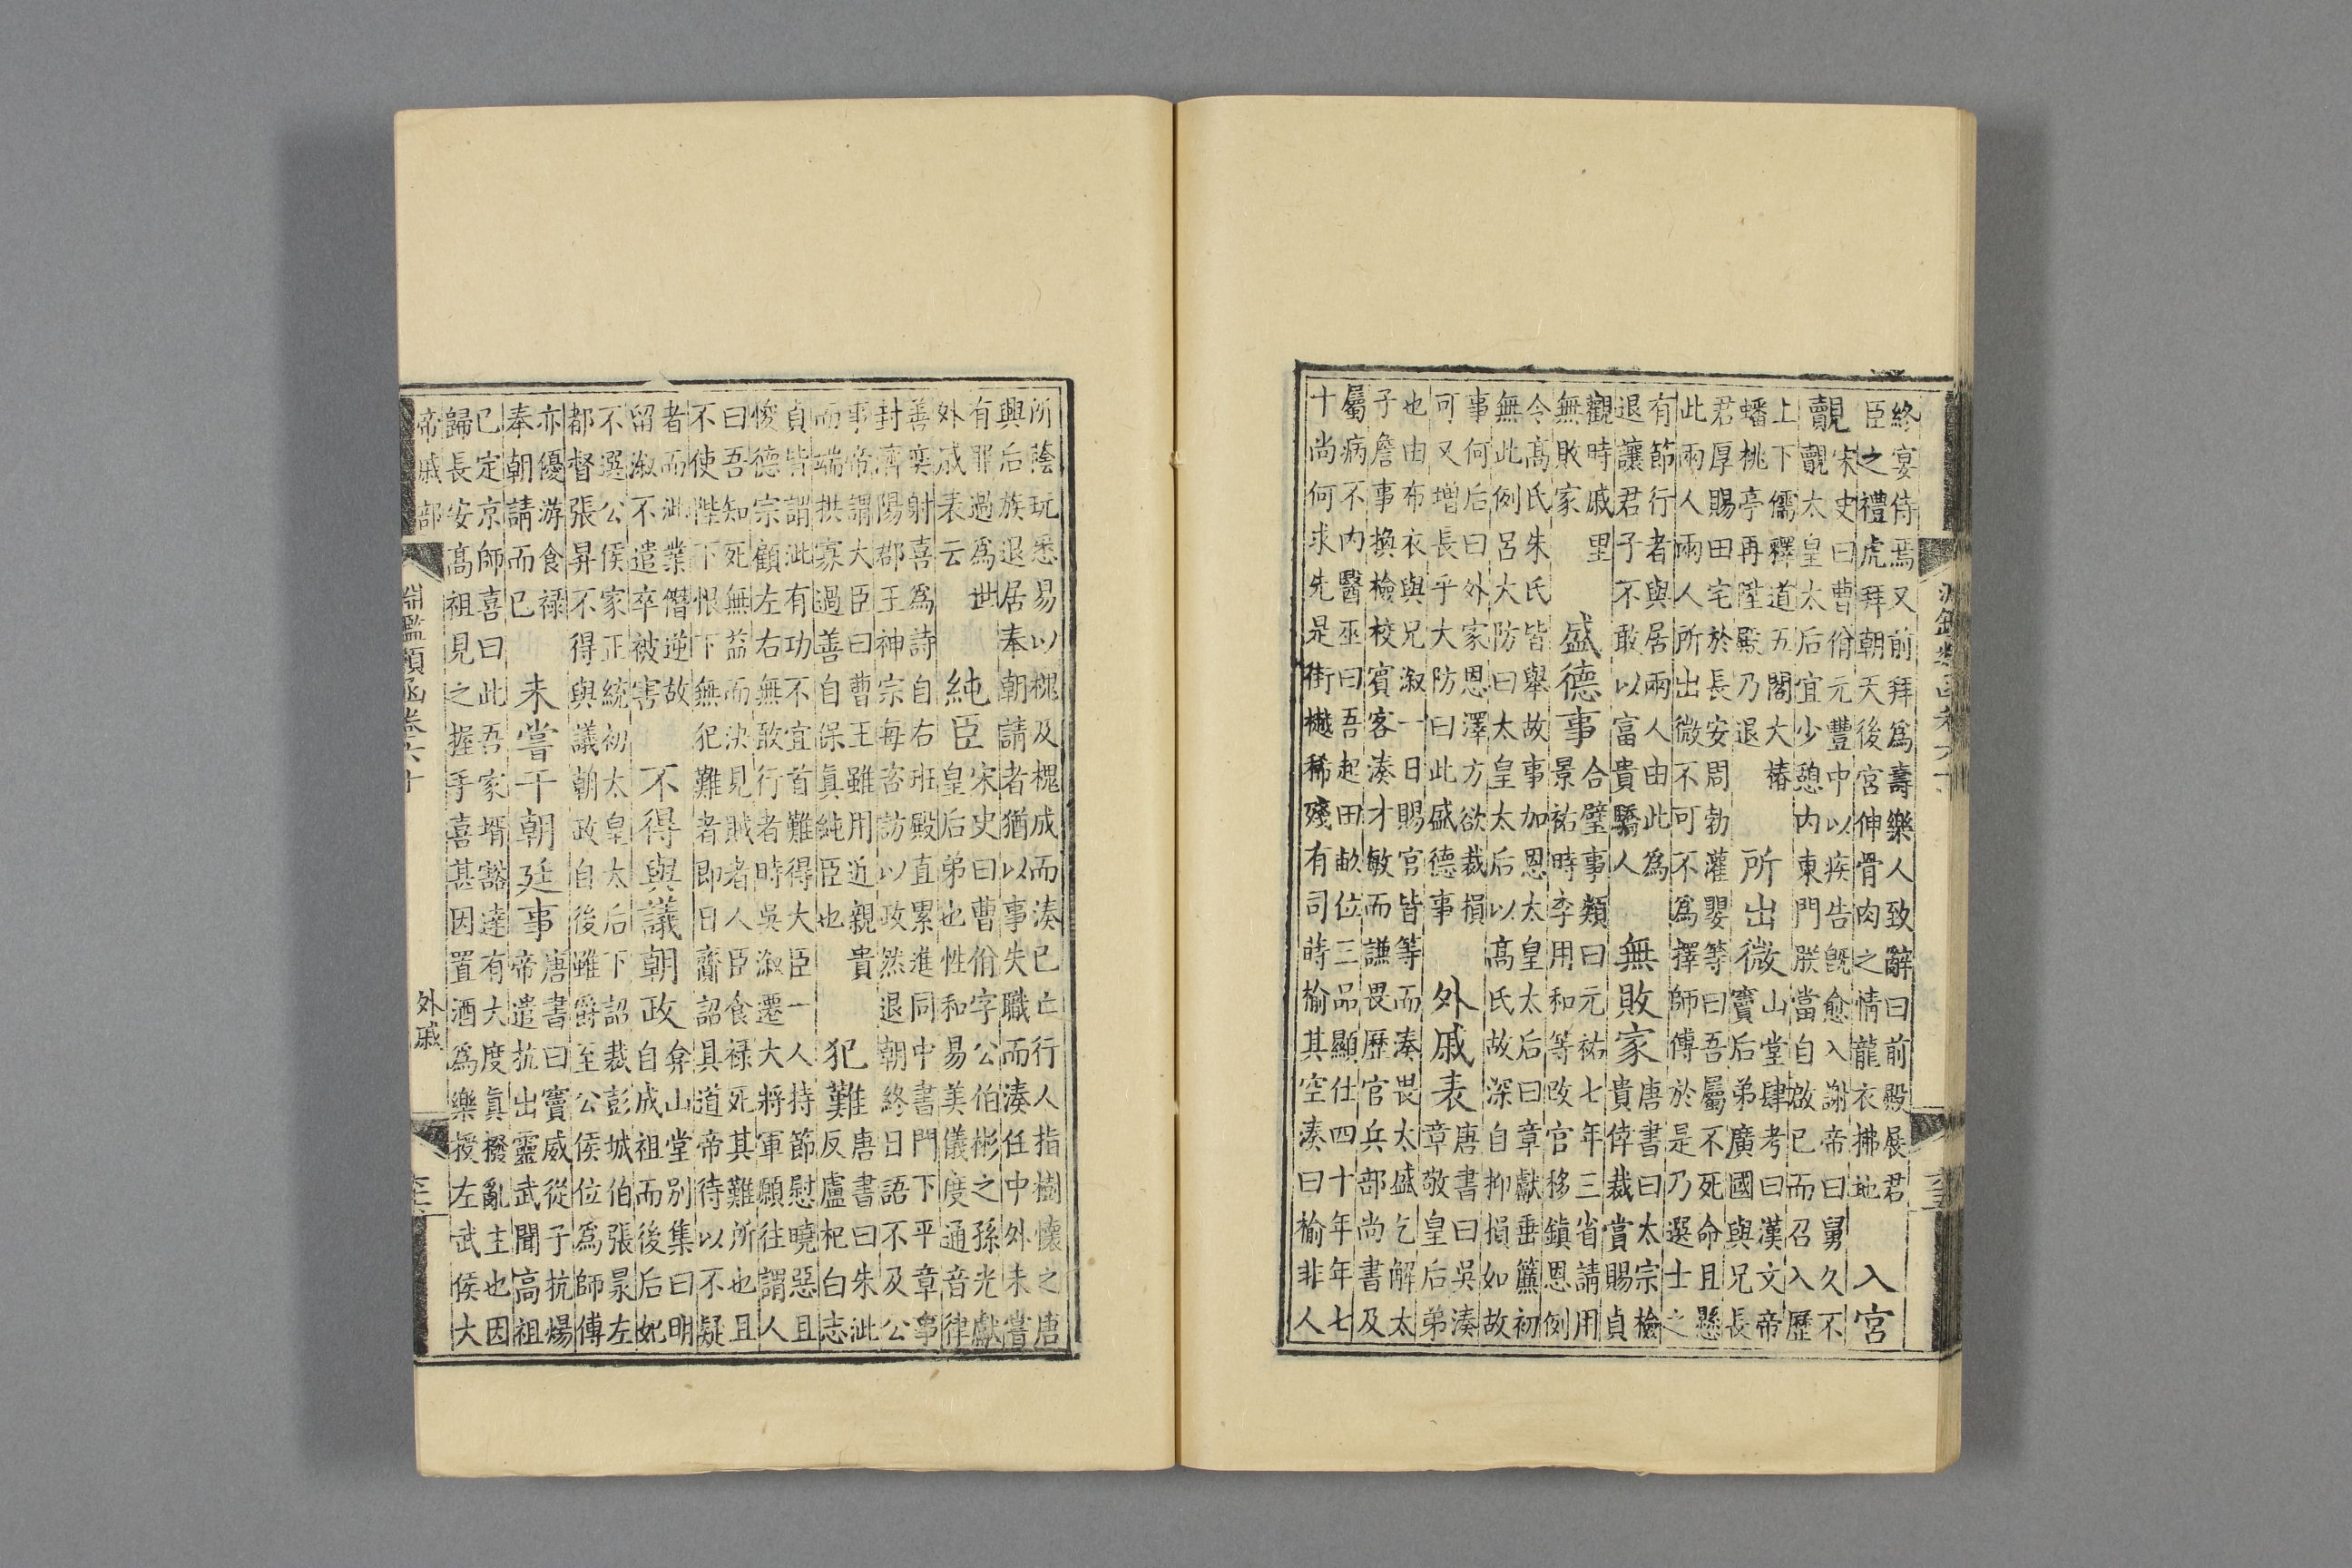 淵鑑類函卷六十
終宴侍焉又前拜爲壽樂人致辭曰前殿展君
臣之禮虎拜朝天後宮伸骨肉之情龍衣拂地
入宮
覿
宋史曰曹佾元豐中以疾告旣愈入謝帝曰舅久不
覿太皇太后宜少憩内東門朕當自啟已而召入歷
上下儒釋道五閣大椿
蟠桃亭再陞殿乃退
所出微
山堂肆考曰漢文帝
竇后弟廣國與兄長
君厚賜田宅於長安周勃灌嬰等曰吾屬不死命且懸
此兩人兩人所出微不可不爲擇師傅於是乃選士之
有節行者與居兩人由此爲
退讓君子不敢以富貴驕人
無敗家
唐書曰太宗檢
貴倖裁賞賜貞
觀時戚里
無敗家
盛德事
合璧事類曰元祐七年三省請用
景祐時李用和等改官移鎮恩例
今高氏朱氏皆舉故事加恩太皇太后曰章獻垂簾初
無此例呂大防曰太皇太后以高氏故深自抑損如故
事何后曰外家恩澤方欲裁損
可又增長乎大防曰此盛德事
外戚表
唐書曰吳湊
章敬皇后弟
也由布衣與兄溆一日賜官皆等而湊畏太盛乞解太
子詹事換檢校賓客湊才敏而謙畏歷官兵部尚書及
屬病不内醫巫曰吾起田畝位三品顯仕四十年年七
十尚何求先是街樾稀殘有司蒔榆其空湊曰榆非人
所蔭玩悉易以槐及槐成而湊已亡行人指樹懷之唐
興后族退居奉朝請者猶以事失職而湊任中外未嘗
有罪過爲世
外戚表云
純臣
宋史曰曹佾字公伯彬之孫光獻
皇后弟也性和易美儀度通音律
善奕射喜爲詩自右班殿直累進同中書門下平章事
封濟陽郡王神宗每咨訪以政然退朝終日語不及公
事帝謂大臣曰曹王雖用近親貴
而端拱寡過善自保眞純臣也
犯難
唐書曰朱泚
反盧杞白志
貞皆謂泚有功不宜首難得大臣一人持節慰曉惡且
悛德宗顧左右無敢行者時吳溆遷大將軍願往謂人
曰吾知死無益而決見賊者人臣食祿死其難所也且
不使陛下恨下無犯難者即日齎詔具道帝待以不疑
者而泚業僭逆故
留溆不遣卒被害
不得與議朝政
弇山堂別集曰明
自成祖而後后妃
不選公侯家正統初太皇太后下詔裁彭城伯張㬎左
都督張昇不得與議朝政自後雖爵至公侯位爲師傅
亦優游食祿
奉朝請而已
未嘗干朝廷事
唐書曰竇威從子抗煬
帝遣抗出靈武聞高祖
已定京師喜曰此吾家壻豁達有大度眞撥亂主也因
歸長安高祖見之握手喜甚因置酒爲樂授左武侯大
帝戚部
淵鑑類函卷六十
外戚